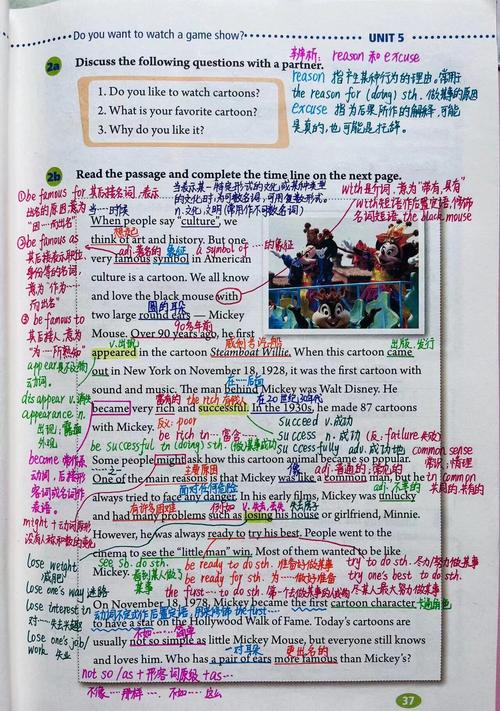 Do you want to watch a game show?
UNIT 5
辨析: reason 和 excuse
2a Discuss the following questions with a partner.
reason 指产生某种行为的理由。常用于
the reason for (doing) sth. 做某事的原因
excuse 指为后果所作的解释,可能
是真的,也可能是托辞。
1. Do you like to watch cartoons?
2. What is your favorite cartoon?
3. Why do you like it?
2b Read the passage and complete the time line on the next page.
①be famous for 其后接名词,表示
出名的原因,意为
"因…而出名"
②be famous as
其后接表示职位、
身份等的名词,
意为"作为…
而出名"
③ be famous to
其后接人,意为
"为…所熟知"
当表示某一特定形式的文化或某种类型
的文化时,为可数名词,可用复数形式。
n.文化,文明(常用作不可数名词)
with是介词,意为"带有,具有"
with短语作后置定语,修饰
名词短语 the black mouse
当…时候
When people say "culture", we
想起
think of art and history. But one
adj.著名的 象征 a symbol of …的象征
very famous symbol in American
culture is a cartoon. We all know
and love the black mouse with
圆的耳朵
two large round ears — Mickey
90多年前
Mouse. Over 90 years ago, he first
v.出现 威利号汽船 出版,发行
appeared in the cartoon Steamboat Willie. When this cartoon came
out in New York on November 18, 1928, it was the first cartoon with
在…后面
sound and music. The man behind Mickey was Walt Disney. He
富有的 the rich 有钱人 在20世纪30年代
became very rich and successful. In the 1930s, he made 87 cartoons
反: poor succeed v.成功
with Mickey.
be rich in … 富含… success n.成功 (反: failure 失败)
be successful in (doing) sth. (做)某事成功 successfully adv.成功地
Some people might ask how this cartoon animal became so popular.
主要原因 像 adj.普通的,常见的
One of the main reasons is that Mickey was like a common man, but he
面对任何危险 adj.不幸的
always tried to face any danger. In his early films, Mickey was unlucky
有许多困难 例如 v.失去,丢失 失去房子
and had many problems such as losing his house or girlfriend, Minnie.
However, he was always ready to try his best. People went to the
cinema to see the "little man" win. Most of them wanted to be like
see sb. do sth. be ready to do sth. 准备好做某事 try to do sth. 尽力/努力做某事
Mickey.
看到某人做了某事 be ready for sth. 为…做好准备 try one's best to do sth.
the first … to do sth. 第一个做某事的人或物 尽某人最大努力做某事
On November 18, 1978, Mickey became the first cartoon character
卡通角色
with a star on the Hollywood Walk of Fame. Today's cartoons are
不如……简单
usually not so simple as little Mickey Mouse, but everyone still knows
一对耳朵 更出名的
and loves him. Who has a pair of ears more famous than Mickey's?
not so /as + 形容词原级 +as…
不像…那样… 不如…这么
appear v.
动词。
disappear v.消失
appearance n.
出现;露面
外观
become 常作系
动词,后接形
容词或名词作
表语。
might + 动词原形
没有人称和数的变化
lose weight
减肥
lose one's way 迷路
lose interest in
对…失去兴趣
lose one's job/
work 失业
common sense
常识,情理
in common
共同的,共有的
37